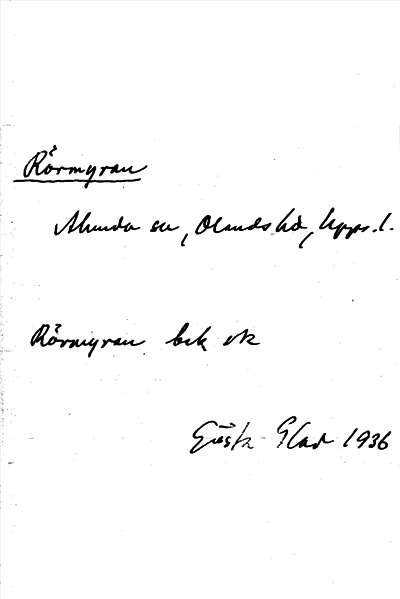 Rörmyran
Alunda sn, Olands hd, Upps. l.
Rörmyran bek ok
Gösta Glad 1936